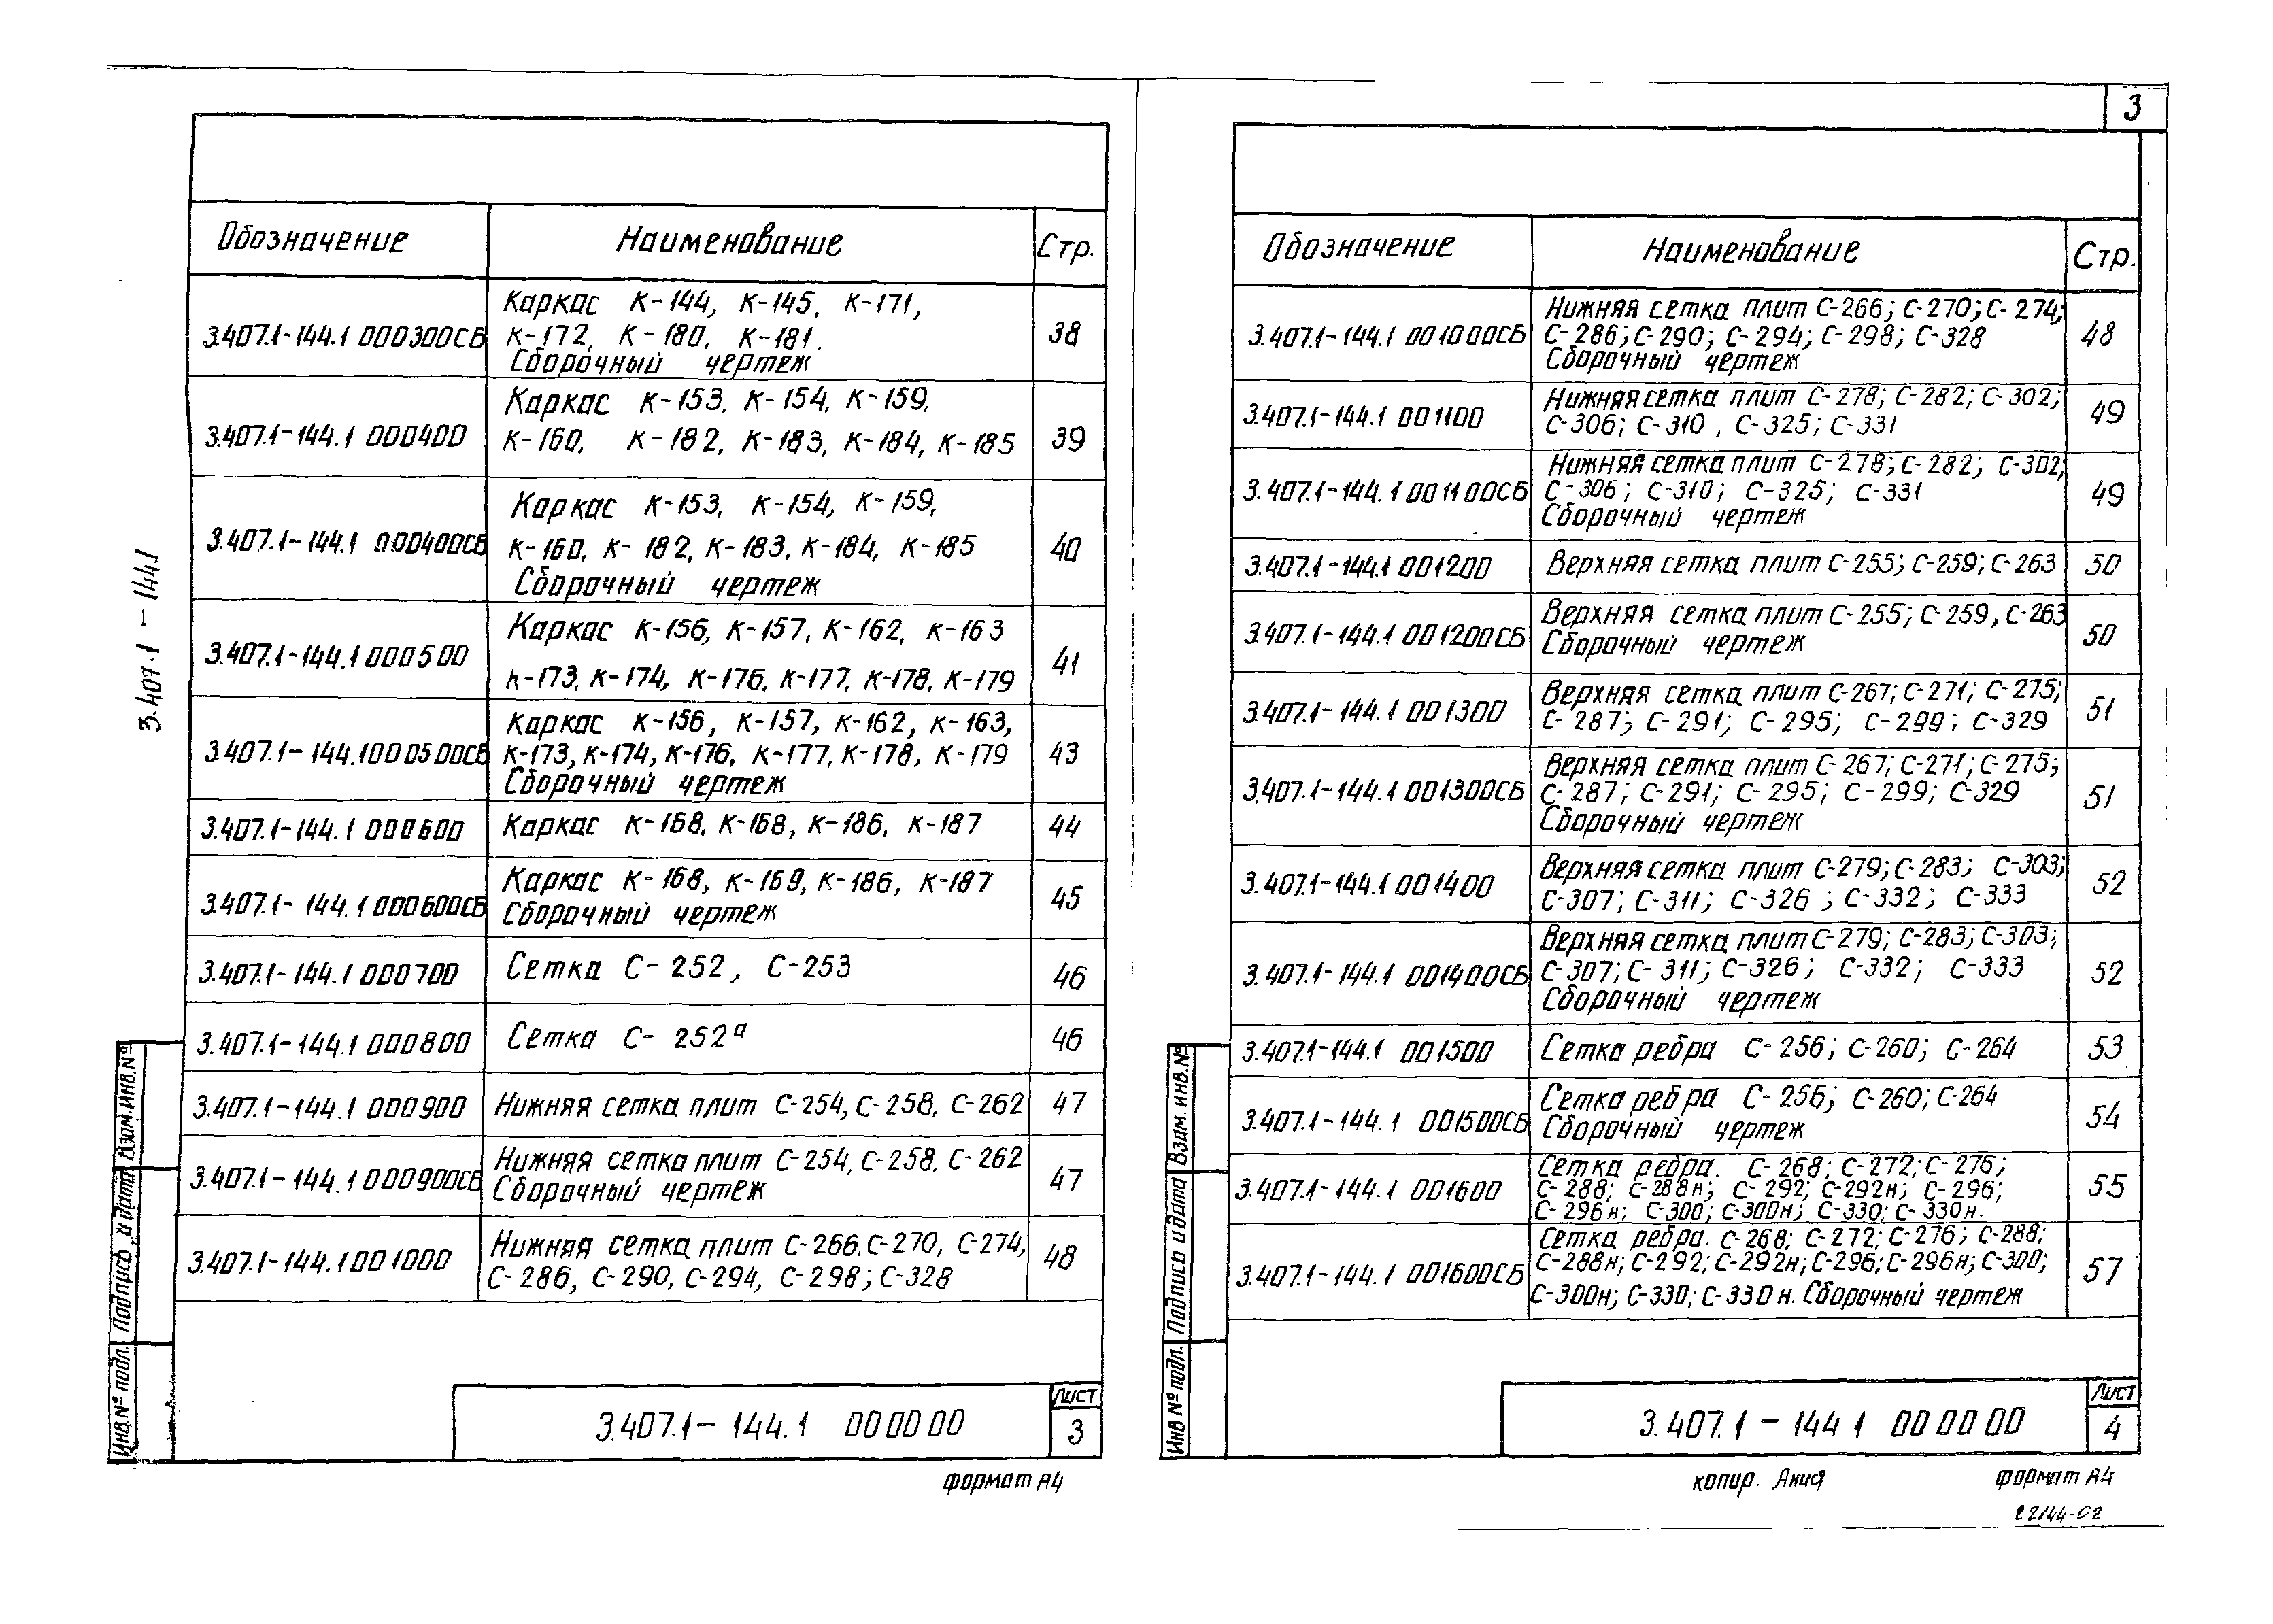 3
3.407.1 - 144.1
Обозначение Наименование Стр.
3.407.1-144.1 000300СБ Каркас К-144, К-145, К-171,
К-172, К-180, К-181.
Сборочный чертеж 38
3.407.1-144.1 000400 Каркас К-153, К-154, К-159,
К-160, К-182, К-183, К-184, К-185 39
3.407.1-144.1 000400СБ Каркас К-153, К-154, К-159,
К-160, К-182, К-183, К-184, К-185
Сборочный чертеж 40
3.407.1-144.1 000500 Каркас К-156, К-157, К-162, К-163
К-173, К-174, К-176, К-177, К-178, К-179 41
3.407.1-144.1 000500СБ Каркас К-156, К-157, К-162, К-163,
К-173, К-174, К-176, К-177, К-178, К-179
Сборочный чертеж 43
3.407.1-144.1 000600 Каркас К-168, К-168, К-186, К-187 44
3.407.1-144.1 000600СБ Каркас К-168, К-169, К-186, К-187
Сборочный чертеж 45
3.407.1-144.1 000700 Сетка С-252, С-253 46
3.407.1-144.1 000800 Сетка С-252а 46
3.407.1-144.1 000900 Нижняя сетка плит С-254, С-258, С-262 47
3.407.1-144.1 000900СБ Нижняя сетка плит С-254, С-258, С-262
Сборочный чертеж 47
3.407.1-144.1 001000 Нижняя сетка плит С-266, С-270, С-274,
С-286, С-290, С-294, С-298; С-328 48
Взам. инв. №
Подпись и дата
Инв. № подл.
3.407.1-144.1 000000
Лист
3
формат А4
Обозначение Наименование Стр.
3.407.1-144.1 001000СБ Нижняя сетка плит С-266; С-270; С-274;
С-286; С-290; С-294; С-298; С-328
Сборочный чертеж 48
3.407.1-144.1 001100 Нижняя сетка плит С-278; С-282; С-302;
С-306; С-310, С-325; С-331 49
3.407.1-144.1 001100СБ Нижняя сетка плит С-278; С-282; С-302;
С-306; С-310; С-325; С-331
Сборочный чертеж 49
3.407.1-144.1 001200 Верхняя сетка плит С-255; С-259; С-263 50
3.407.1-144.1 001200СБ Верхняя сетка плит С-255; С-259, С-263
Сборочный чертеж 50
3.407.1-144.1 001300 Верхняя сетка плит С-267; С-271; С-275;
С-287; С-291; С-295; С-299; С-329 51
3.407.1-144.1 001300СБ Верхняя сетка плит С-267; С-271; С-275;
С-287; С-291; С-295; С-299; С-329
Сборочный чертеж 51
3.407.1-144.1 001400 Верхняя сетка плит С-279; С-283; С-303;
С-307; С-311; С-326; С-332; С-333 52
3.407.1-144.1 001400СБ Верхняя сетка плит С-279; С-283; С-303;
С-307; С-311; С-326; С-332; С-333
Сборочный чертеж 52
3.407.1-144.1 001500 Сетка ребра С-256; С-260; С-264 53
3.407.1-144.1 001500СБ Сетка ребра С-256; С-260; С-264
Сборочный чертеж 54
3.407.1-144.1 001600 Сетка ребра. С-268; С-272; С-276;
С-288; С-288н; С-292; С-292н; С-296;
С-296н; С-300; С-300н; С-330; С-330н. 55
3.407.1-144.1 001600СБ Сетка ребра. С-268; С-272; С-276; С-288;
С-288н; С-292; С-292н; С-296; С-296н; С-300;
С-300н; С-330; С-330н. Сборочный чертеж 57
Взам. инв. №
Подпись и дата
Инв № подл.
3.407.1-144 1 000000
Лист
4
копир. формат А4
22144-02